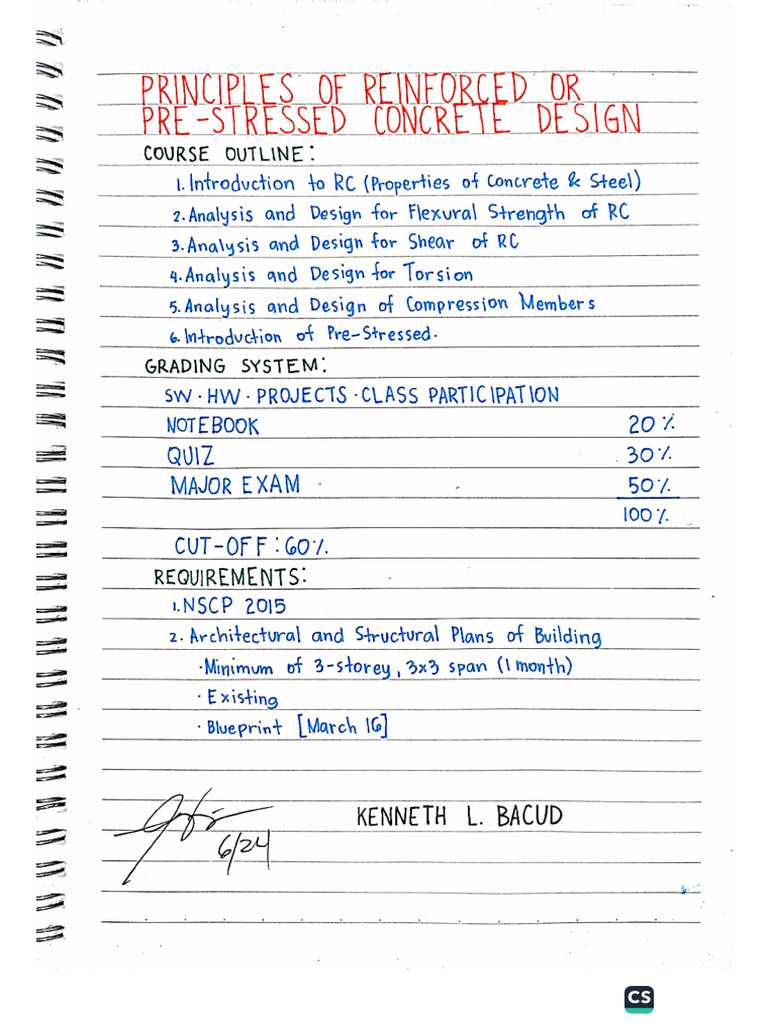 PRINCIPLES OF REINFORCED OR
PRE-STRESSED CONCRETE DESIGN
COURSE OUTLINE:
1. Introduction to RC (Properties of Concrete & Steel)
2. Analysis and Design for Flexural Strength of RC
3. Analysis and Design for Shear of RC
4. Analysis and Design for Torsion
5. Analysis and Design of Compression Members
6. Introduction of Pre-Stressed.
GRADING SYSTEM:
SW · HW · PROJECTS · CLASS PARTICIPATION
NOTEBOOK 20%
QUIZ 30%
MAJOR EXAM 50%
100%
CUT-OFF: 60%
REQUIREMENTS:
1. NSCP 2015
2. Architectural and Structural Plans of Building
· Minimum of 3-storey, 3x3 span (1 month)
· Existing
· Blueprint [March 16]
KENNETH L. BACUD
6/24
CS